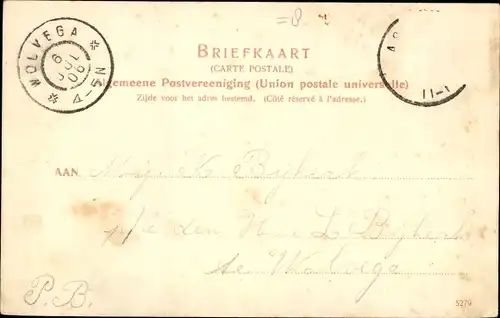 =8.
WOLVEGA
4-5N
11-1
BRIEFKAART
(CARTE POSTALE)
gemeene Postvereeniging (Union postale universelle)
Zijde voor het adres bestemd. (Côté réservé à l'adresse.)
AAN Mej. K Bijkerk
p/a den Heer L Bijkerk
te Wolvega
P.B.
5279